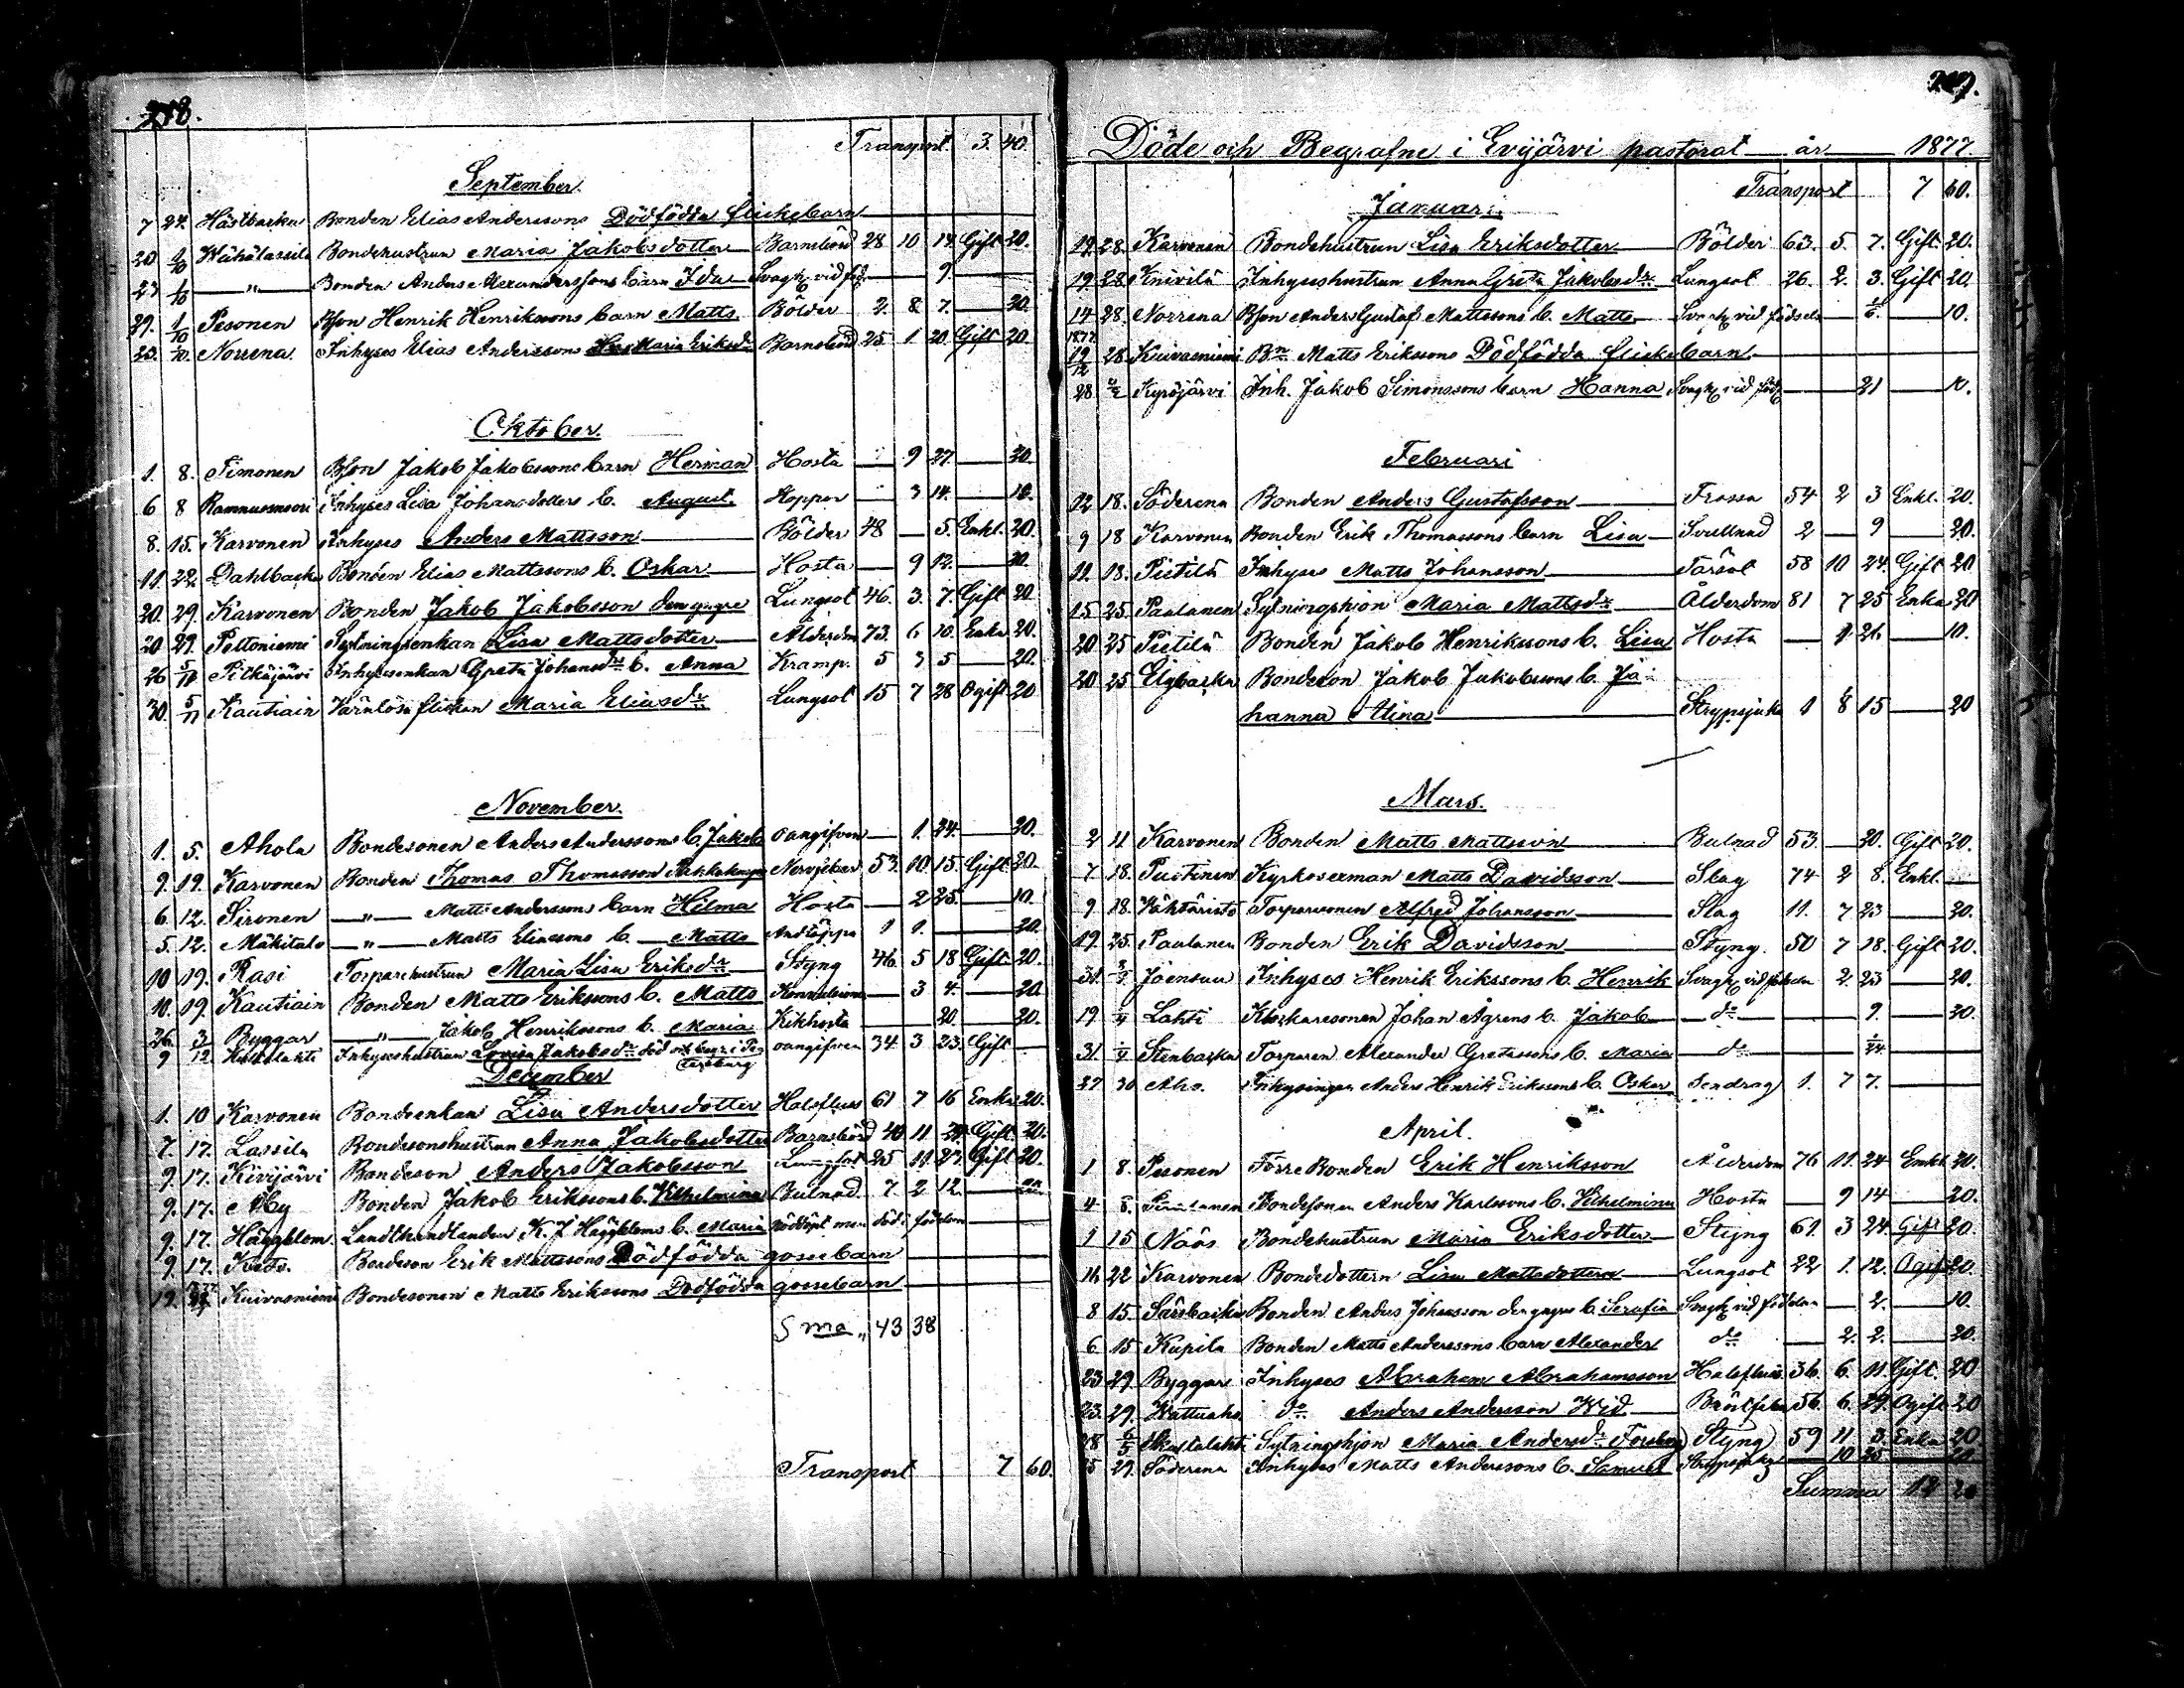 218.
Transport 3. 40.
September.
7 24. Hästbacka Bonden Elias Anderssons Dödfödda flickebarn
20 1/10 Wähälassila Bondehustrun Maria Jakobsdotter Barnsbörd 28 10 19. Gift 20.
23 1/10 —"— Bonden Anders Alexanderssons barn Ida Svagh. vid föd. 9.
29. 1/10 Pesonen Bson Henrik Henrikssons barn Matts Bölder 2. 8 7. 20.
23. /10. Norrena Inhyses Elias Anderssons Maria Eriksdr Barnsbörd 25 1 20 Gift 20
Oktober.
1. 8. Timonen Bson Jakob Jakobssons barn Herman Hosta 9 27. 20.
6 8 Inhyses Lisa Johansdotters b. August Koppor 3 14. 10.
8. 15. Karvonen Inhyses Anders Mattsson Bölder 48 — 5. Enkl. 20.
11. 22 Dahlbacka Bonden Elias Mattssons b. Oskar Hosta 9 12. 20.
20. 29. Karvonen Bonden Jakob Jakobsson den yngre Lungsot 46. 3. 7. Gift 20
20 29. Peltoniemi Sytningsenkan Lisa Mattsdotter Ålderdom 73. 6 10. Enka 20.
26 5/11 Pitkäjärvi Inhysesenkan Greta Johansdr b. Anna Kramp. 5 3 5 20.
30. 5/11 Kautiain Värnlösa flickan Maria Eliasdr Lungsot 15 7 28 Ogift 20
November.
1. 5. Ahola Bondesonen Anders Anderssons b. Jakob oangifven 1. 24. 20.
9. 19. Karvonen Bonden Thomas Thomasson Nervfeber 53. 10. 15. Gift 20.
6. 12. Sironen —"— Matts Anderssons barn Hilma Hosta 2 25. 10.
5. 12. Mäkitalo —"— Matts Eliassons b. Matts Andtäppa 1 1. 20.
10 19. Rasi Torparehustrun Maria Lisa Eriksdr Styng 46. 5 18 Gift 20.
10. 19. Kautiain Bonden Matts Erikssons b. Matts Konvulsion 3 4. 20
26. 3 Byggar —"— Jakob Henrikssons b. Maria Kikhosta 20. 20.
9 12. Inhyseshustrun Lovisa Jakobsdr död och begr. i Petersburg oangifven 34. 3 23. Gift
December
1. 10 Karvonen Bondeenkan Lisa Andersdotter Halsfluss 61 7 16 Enka 20.
7. 17. Lassila Bondesonshustrun Anna Jakobsdotter Barnsbörd 40 11 29. Gift 20.
9. 17. Kivijärvi Bondeson Anders Jakobsson Lungsot 25 11. 23. Gift 20.
9. 17. Åby Bonden Jakob Erikssons b. Wilhelmina Bulnad 7 2 12.
9. 17. Häggblom Landthandlanden K. J. Häggbloms b. Maria Nöddöpt men död i födslan
9. 17. Keto. Bondeson Erik Mattssons Dödfödda gossebarn
19. Kuivasniemi Bondesonen Matts Erikssons Dödfödda gossebarn
Sma „ 43 38
Transport 7 60.
219.
Döde och Begrafne i Evijärvi pastorat år 1877.
Transport 7 60.
Januari.
19. 28. Karvonen Bondehustrun Lisa Eriksdotter Bölder 63. 5. 7. Gift. 20.
19. 28. Knivilä Inhyseshustrun Anna Greta Jakobsdr. Lungsot 26. 2. 3. Gift 20.
14 28. Norrena Bson Anders Gustaf Mattssons b. Matts Svagh. vid födseln 10.
19/12 28. Kuivasniemi Bn Matts Erikssons Dödfödda flickebarn
28 4/2 Kyröjärvi Inh. Jakob Simonssons barn Hanna Svagh. vid föds. 21 10.
Februari
12 18. Söderena Bonden Anders Gustafsson Frossa 54 2 3 Enkl. 20.
9 18 Karvonen Bonden Erik Thomassons barn Lisa Svullnad 2 — 9 20.
11. 18. Pietilä Inhyses Matts Johansson Tärsot 58 10 24. Gift 20
15 25. Paalanen Sytningshjon Maria Mattsdr. Ålderdom 81 7 25 Enka 20
20 25 Pietilä Bonden Jakob Henrikssons b. Lisa Hosta 1 26 10.
20 25 Elgbacka Bondeson Jakob Jakobssons b. Jo-
hanna Stina Strypsjuka 1 8 15 20
Mars.
2 11 Karvonen Bonden Matts Mattsson Bulnad 53. — 20. Gift 20.
7 18. Puotinen Kyrkosexman Matts Davidsson Slag 74 2 8. Enkl.
9 18. Torparesonen Alfred Johansson Slag 11. 7 23 20.
19. 25. Paalanen Bonden Erik Davidsson Styng. 50 7 18. Gift 20.
31. Joensuu Inhyses Henrik Erikssons b. Henrik Svagh. vid födseln 2. 23 20.
19 /4 Lahti Klockaresonen Johan Ågrens b. Jakob do 9. 20.
31. /4 Stenbacka Torparen Alexander Gretassons b. Maria do 1/24
27 30 Aho. Inhysingen Anders Henrik Erikssons b. Oskar Sendrag 1. 7 7.
April.
1 8. Pesonen Förre Bonden Erik Henriksson Ålderdom 76 11. 24 Enkl. 20.
4 8. Bondesonen Anders Karlssons b. Wilhelmina Hosta 9 14 20.
1 15 Nääs Bondehustrun Maria Eriksdotter Styng 61. 3 24. Gift 20.
16 22 Karvonen Bondedottern Lisa Mattsdotter Lungsot 22 1. 12. Ogift 20.
8 15. Särsbacka Bonden Anders Johansson den yngres b. Serafia Svagh. vid födslan 2. 10.
6 15 Kupila Bonden Matts Anderssons barn Alexander do 2. 2. 20.
23 29. Byggar Inhyses Abraham Abrahamsson Halsfluss 36. 6. 11. Gift. 20
23. 29. Wattuaho do Anders Andersson Wid Bröstfeber 56. 6. 29. Ogift 20
28 6/5 Sytningshjon Maria Andersdr Forsberg Styng 59 11 3. Enka 20.
15 29. Söderena Inhyses Matts Anderssons b. Samuel Strypsjuka 10 25 20.
Summa 12 20